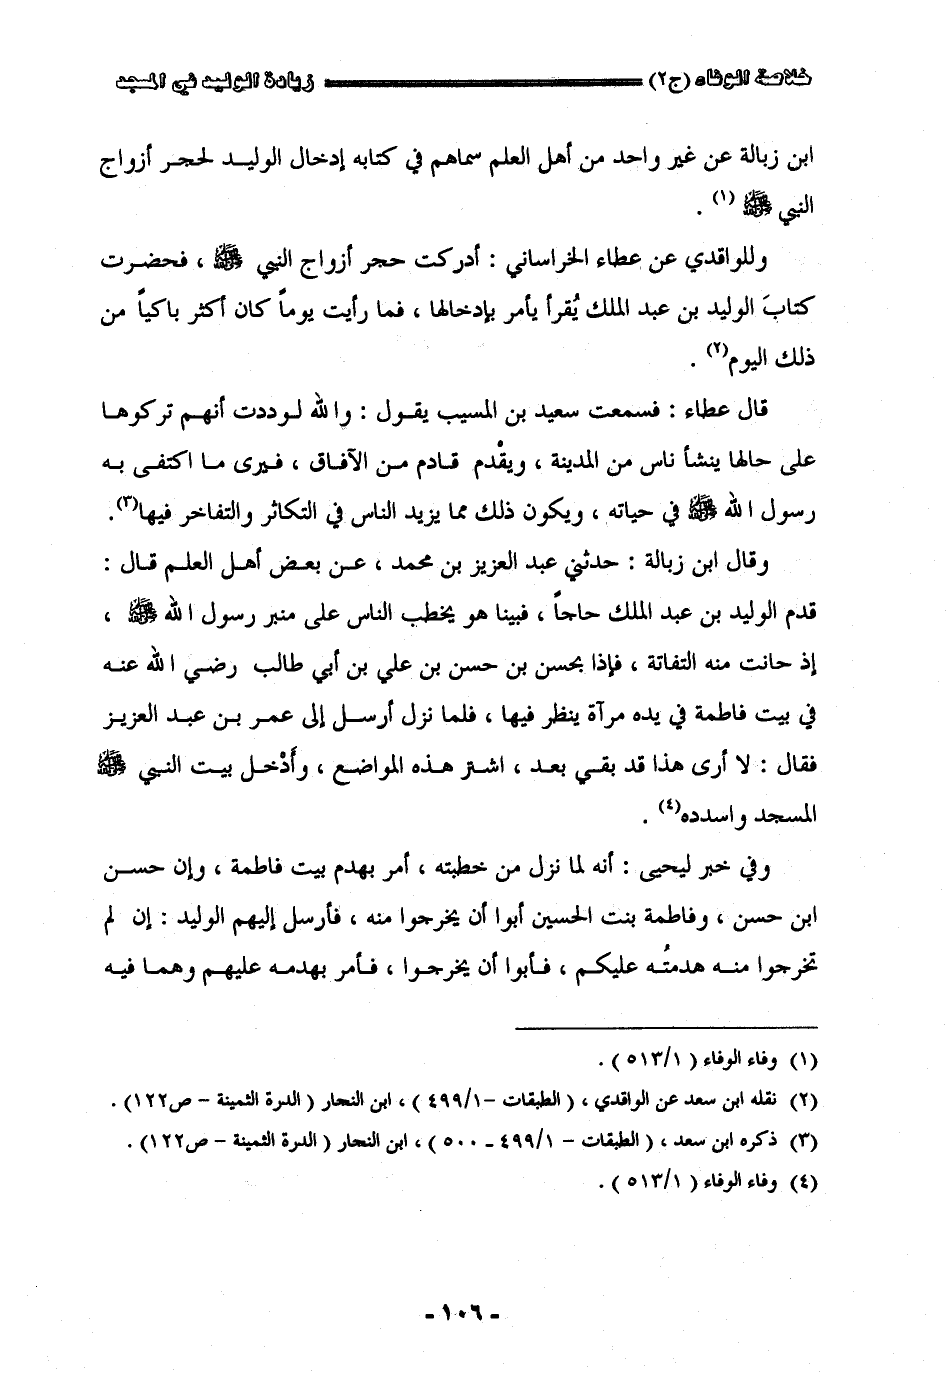 خلاصة الوفاء (ج٢) زيادة الوليد في المسجد
ابن زبالة عن غير واحد من أهل العلم سماهم في كتابه إدخال الوليد لحجر أزواج
النبي ﷺ (١) .
وللواقدي عن عطاء الخراساني : أدركت حجر أزواج النبي ﷺ ، فحضرت
كتابَ الوليد بن عبد الملك يُقرأ يأمر بإدخالها ، فما رأيت يوماً كان أكثر باكياً من
ذلك اليوم(٢) .
قال عطاء : فسمعت سعيد بن المسيب يقول : والله لوددت أنهم تركوها
على حالها ينشأ ناس من المدينة ، ويقْدم قادم من الآفاق ، فيرى ما اكتفى به
رسول الله ﷺ في حياته ، ويكون ذلك مما يزيد الناس في التكاثر والتفاخر فيها(٣).
وقال ابن زبالة : حدثني عبد العزيز بن محمد ، عن بعض أهل العلم قال :
قدم الوليد بن عبد الملك حاجاً ، فبينا هو يخطب الناس على منبر رسول الله ﷺ ،
إذ حانت منه التفاتة ، فإذا بحسن بن حسن بن علي بن أبي طالب رضي الله عنه
في بيت فاطمة في يده مرآة ينظر فيها ، فلما نزل أرسل إلى عمر بن عبد العزيز
فقال : لا أرى هذا قد بقي بعد ، اشتر هذه المواضع ، وأَدْخل بيت النبي ﷺ
المسجد واسدده(٤) .
وفي خبر ليحيى : أنه لما نزل من خطبته ، أمر بهدم بيت فاطمة ، وإن حسن
ابن حسن ، وفاطمة بنت الحسين أبوا أن يخرجوا منه ، فأرسل إليهم الوليد : إن لم
تخرجوا منه هدمتُه عليكم ، فأبوا أن يخرجوا ، فأمر بهدمه عليهم وهما فيه
(١) وفاء الوفاء ( ٥١٣/١ ) .
(٢) نقله ابن سعد عن الواقدي ، ( الطبقات -٤٩٩/١ ) ، ابن النجار ( الدرة الثمينة - ص١٢٢) .
(٣) ذكره ابن سعد ، ( الطبقات - ٤٩٩/١ - ٥٠٠ ) ، ابن النجار ( الدرة الثمينة - ص١٢٢) .
(٤) وفاء الوفاء ( ٥١٣/١ ) .
- ١٠٦ -